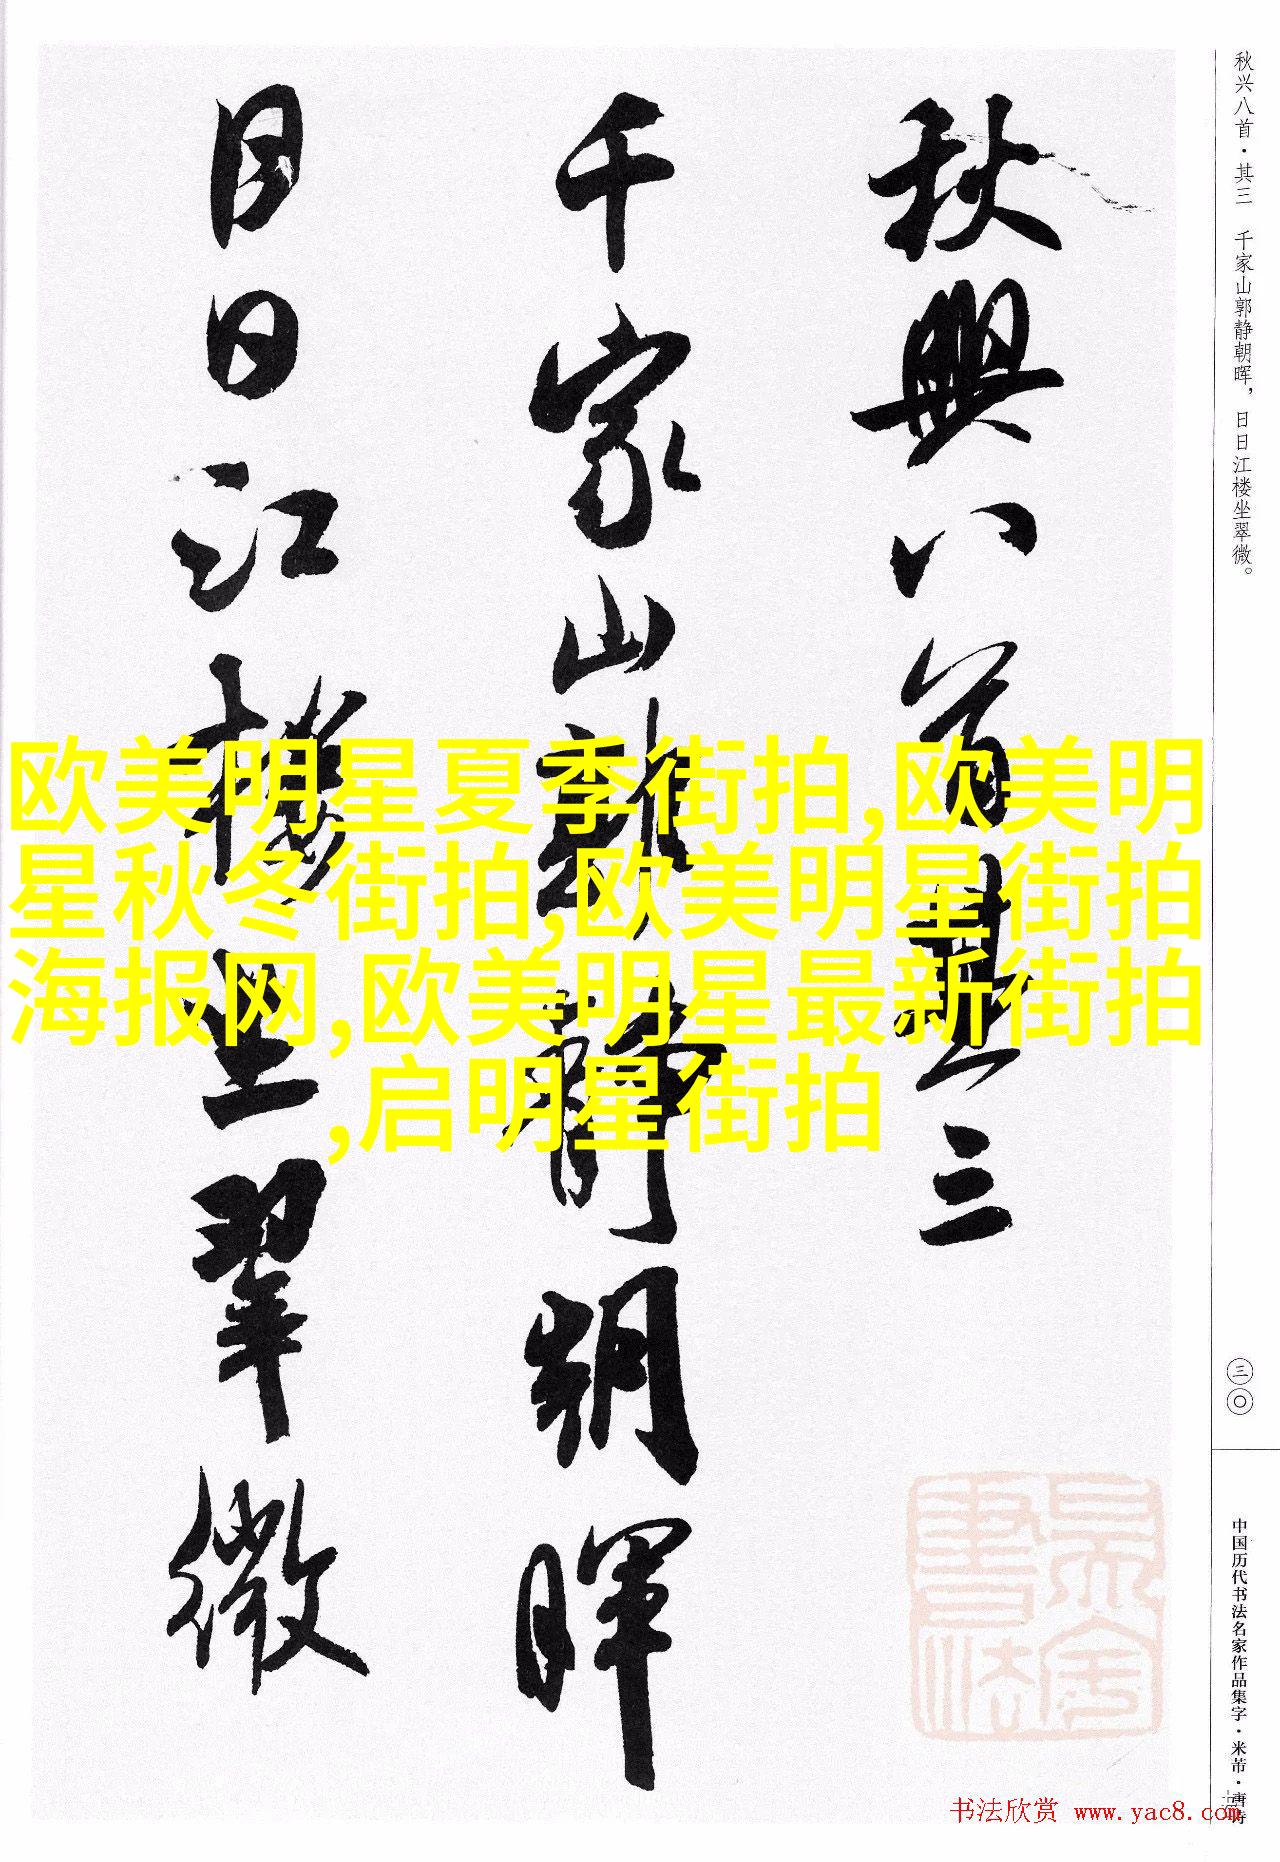 秋興八首其三
千家山郭静朝暉
日日江樓坐翠微
秋兴八首·其三 千家山郭静朝晖，日日江楼坐翠微。
三〇
中国历代书法名家作品集字·米芾·唐诗
欧美明星夏季街拍,欧美明
星秋冬街拍,欧美明星街拍
海报网,欧美明星最新街拍
,启明星街拍
书法欣赏 www.yac8.com